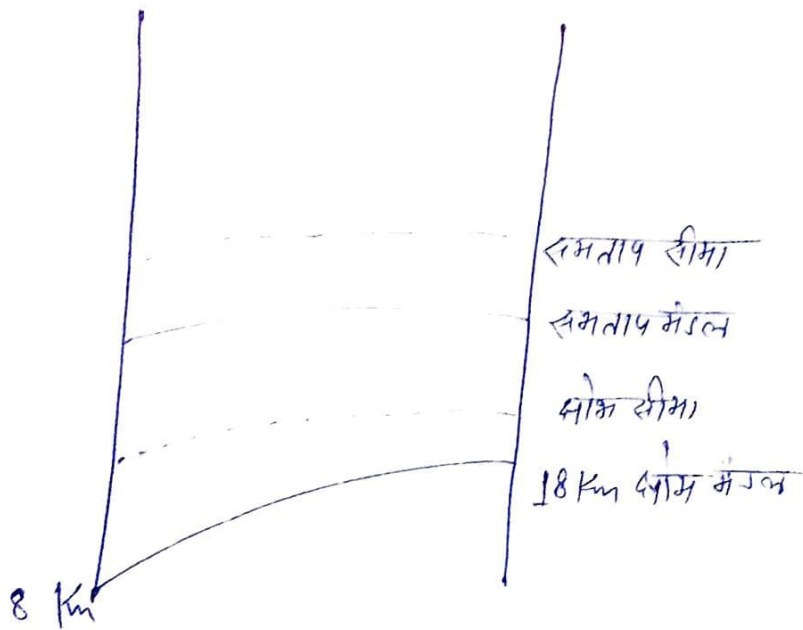 समताप सीमा
समताप मंडल
क्षोभ सीमा
18 Km क्षोभ मंडल
8 Km